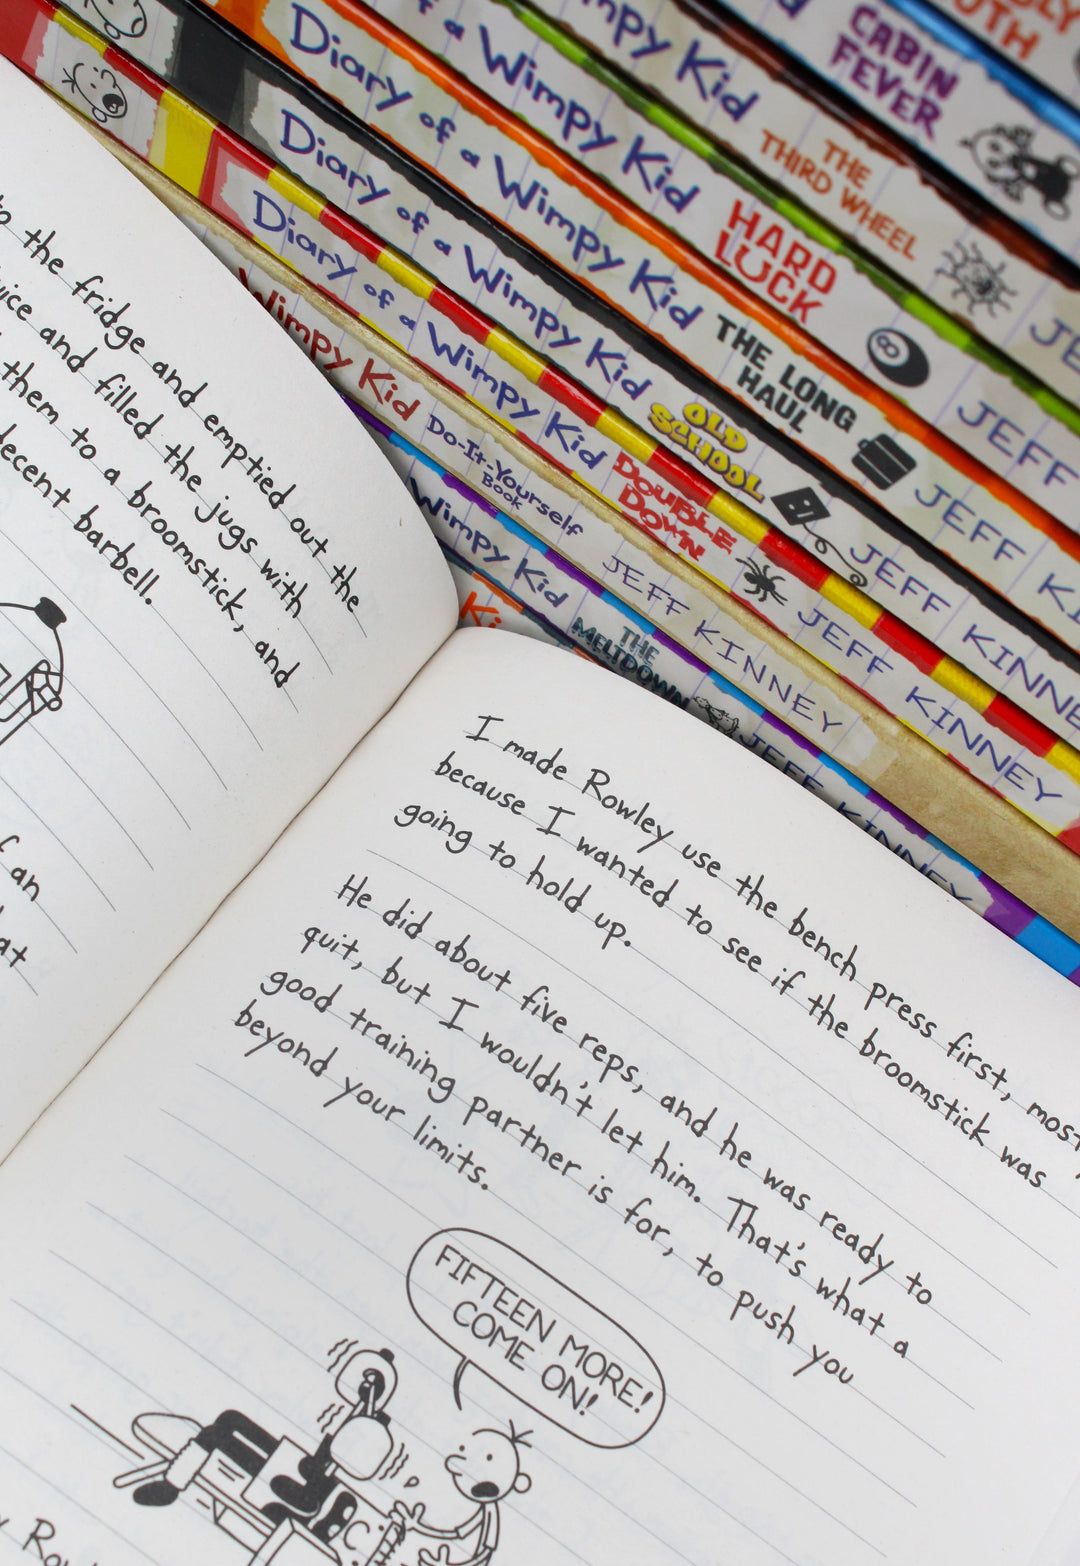 UGLY
TRUTH
CABIN
FEVER
Wimpy Kid
THE
THIRD WHEEL
of a Wimpy Kid
HARD
LUCK
JEFF
Diary of a Wimpy Kid
THE LONG
HAUL
JEFF
Diary of a Wimpy Kid
OLD
SCHOOL
JEFF KINNEY
Diary of a Wimpy Kid
DOUBLE
DOWN
JEFF KINNEY
Wimpy Kid
Do-It-Yourself
Book
JEFF KINNEY
Wimpy Kid
THE
MELTDOWN
JEFF KINNEY
to the fridge and emptied out the
and filled the jugs with
them to a broomstick, and
decent barbell.
an
I made Rowley use the bench press first,
because I wanted to see if the broomstick was
going to hold up.
He did about five reps, and he was ready to
quit, but I wouldn't let him. That's what a
good training partner is for, to push you
beyond your limits.
FIFTEEN MORE!
COME ON!